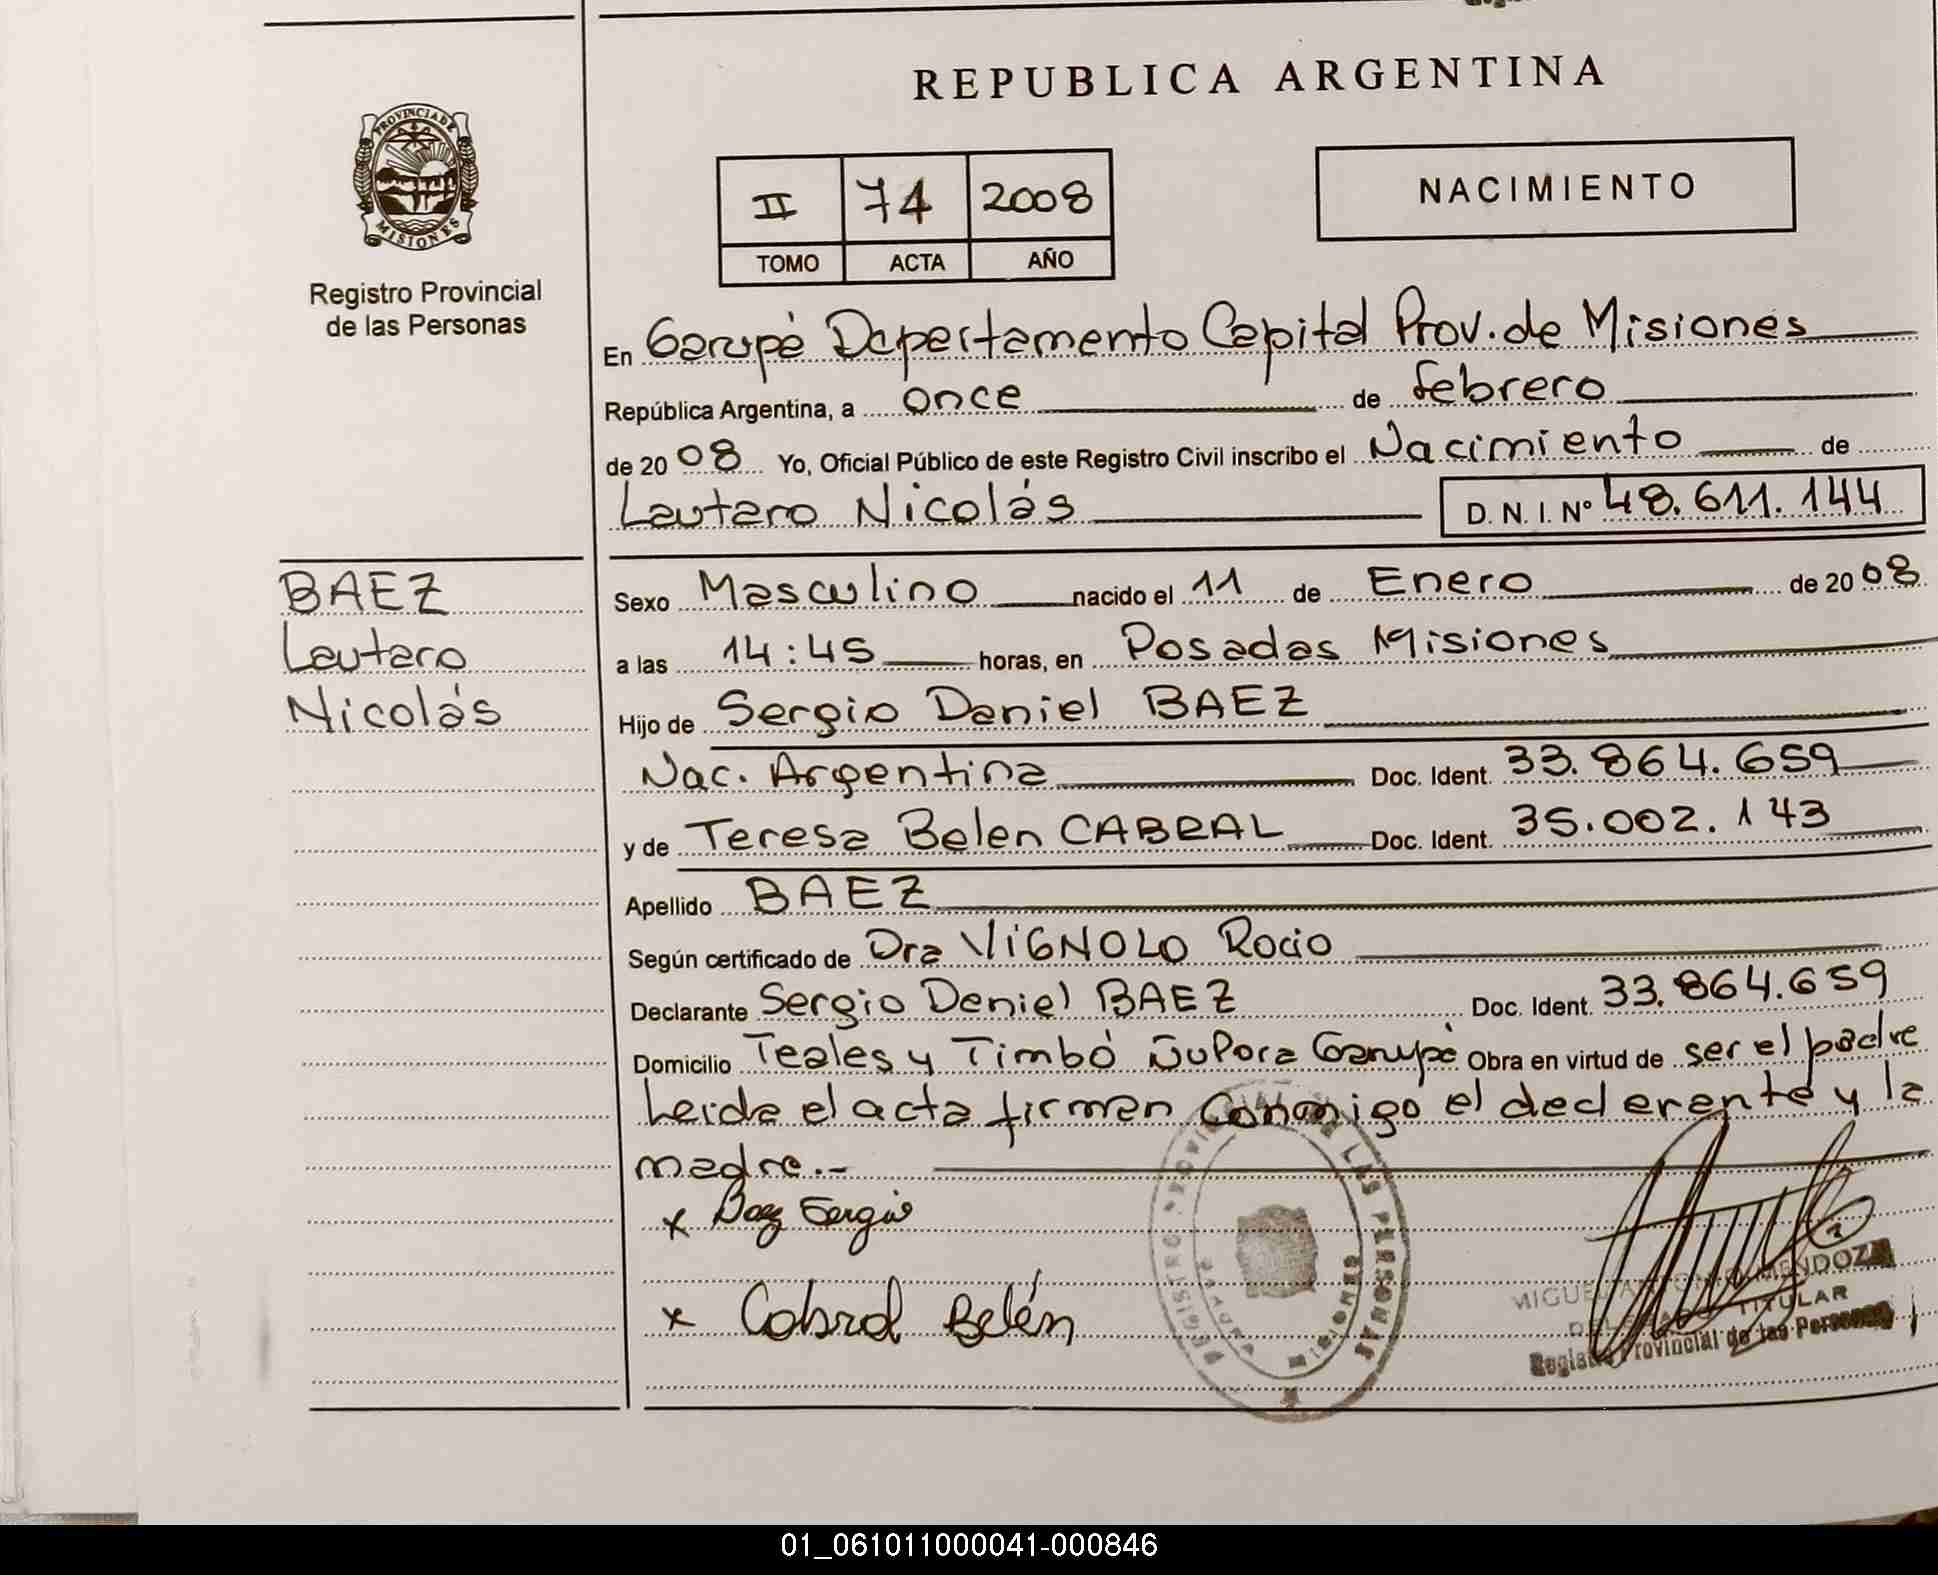 REPUBLICA ARGENTINA
PROVINCIA DE
MISIONES
Registro Provincial
de las Personas
NACIMIENTO
II 74 2008
TOMO ACTA AÑO
En Garupé Departamento Capital Prov. de Misiones
República Argentina, a once de febrero
de 2008 Yo, Oficial Público de este Registro Civil inscribo el Nacimiento de
Lautaro Nicolás D. N. I. Nº 48.611.144
BAEZ
Lautaro
Nicolás
Sexo Masculino nacido el 11 de Enero de 2008
a las 14:45 horas, en Posadas Misiones
Hijo de Sergio Daniel BAEZ
Nac. Argentina Doc. Ident. 33.864.659
y de Teresa Belen CABRAL Doc. Ident. 35.002.143
Apellido BAEZ
Según certificado de Dra VIGNOLO Rocio
Declarante Sergio Daniel BAEZ Doc. Ident. 33.864.659
Domicilio Teales y Timbó Ñu Pora Garupé Obra en virtud de ser el padre
Leida el acta firman conmigo el declarante y la
madre.-
x Baez Sergio
x Cabral Belén
REGISTRO PROVINCIAL DE LAS PERSONAS
MISIONES
MIGUEL ANTONIO MENDOZA
DELEGADO TITULAR
Registro Provincial de las Personas
01_061011000041-000846